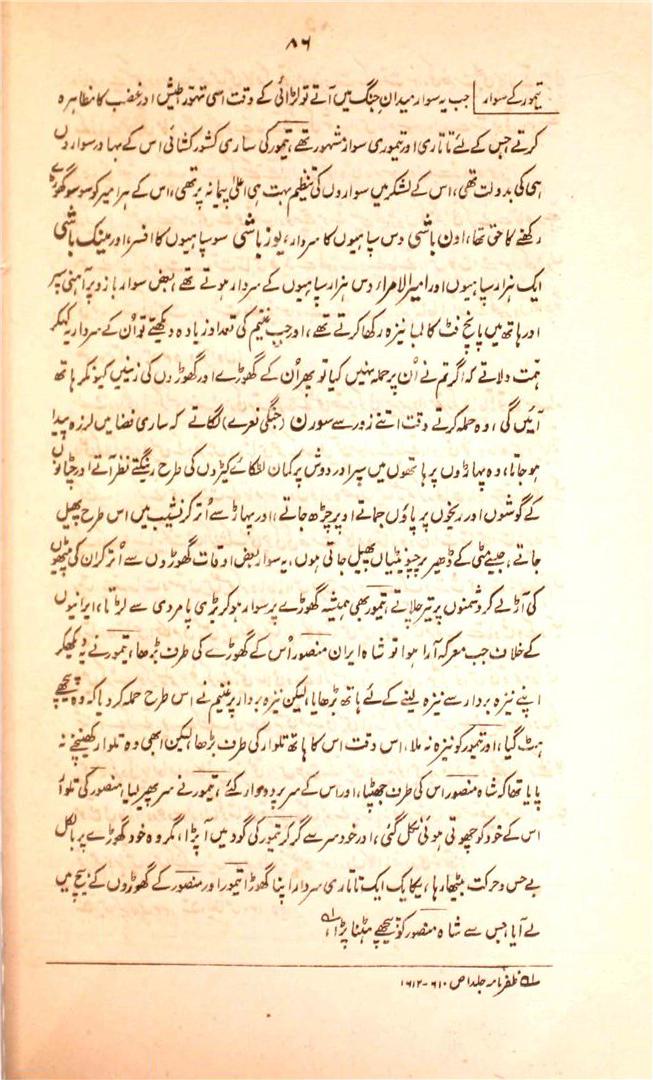 ۸۶
تیمور کے سوار | جب یہ سوار میدانِ جنگ میں آتے تو لڑائی کے وقت اسی تہور، طیش اور غضب کا مظاہرہ
کرتے جس کے لئے تاتاری اور تیموری سوار مشہور تھے، تیمور کی ساری کشور کشائی اس کے بہادر سواروں
ہی کی بدولت تھی، اس کے لشکر میں سواروں کی تنظیم بہت ہی اعلیٰ پیمانہ پر تھی، اس کے ہر امیر کو سو سو گھوڑے
رکھنے کا حق تھا، اون باشی دس سپاہیوں کا سردار، یوز باشی سو سپاہیوں کا افسر، اور مینک باشی
ایک ہزار سپاہیوں اور امیر الامراء دس ہزار سپاہیوں کے سردار ہوتے تھے، بعض سوار بازو پر آہنی سپر
اور ہاتھ میں پانچ فٹ کا لمبا نیزہ رکھا کرتے تھے، اور جب غنیم کی تعداد زیادہ دیکھتے تو اُن کے سردار یہ کہکر
ہمت دلاتے کہ اگر تم نے اُن پر حملہ نہیں کیا تو پھر اُن کے گھوڑے اور گھوڑوں کی زینیں کیونکر ہاتھ
آئیں گی، وہ حملہ کرتے وقت اتنے زور سے سورن (جنگی نعرے) لگاتے کہ ساری فضا میں لرزہ پیدا
ہو جاتا، وہ پہاڑوں پر ہاتھوں میں سپر اور دوش پر کمان لٹکائے کیڑوں کی طرح رینگتے نظر آتے اور چٹانوں
کے گوشوں اور ریخوں پر پاؤں جماتے اوپر چڑھ جاتے، اور پہاڑ سے اُتر کر نشیب میں اس طرح پھیل
جاتے، جیسے مٹی کے ڈھیر پر چیونٹیاں پھیل جاتی ہوں، یہ سوار بعض اوقات گھوڑوں سے اُتر کر ان کی پیٹھوں
کی آڑ لے کر دشمنوں پر تیر چلاتے، تیمور بھی ہمیشہ گھوڑے پر سوار ہو کر بڑی پامردی سے لڑتا، ایرانیوں
کے خلاف جب معرکہ آرا ہوا تو شاہ ایران منصور اُس کے گھوڑے کی طرف بڑھا، تیمور نے یہ دیکھکر
اپنے نیزہ بردار سے نیزہ لینے کے لئے ہاتھ بڑھایا لیکن نیزہ بردار پر غنیم نے اس طرح حملہ کر دیا کہ وہ پیچھے
ہٹ گیا، اور تیمور کو نیزہ نہ ملا، اس وقت اس کا ہاتھ تلوار کی طرف بڑھا، لیکن ابھی وہ تلوار کھینچنے نہ
پایا تھا کہ شاہ منصور اس کی طرف جھپٹا، اور اس کے سر پر دو وار کئے، تیمور نے سر پھیر لیا، منصور کی تلوار
اس کے خود کو چھوتی ہوئی نکل گئی، اور خود سر سے گر کر تیمور کی گود میں آ پڑا، مگر وہ خود گھوڑے پر بالکل
بے حس و حرکت بیٹھا رہا، یکایک ایک تاتاری سردار اپنا گھوڑا تیمور اور منصور کے گھوڑوں کے بیچ میں
لے آیا، جس سے شاہ منصور کو پیچھے ہٹنا پڑا،
ظفر نامہ جلد ا ص ۶۱۰-۱۶۱۲